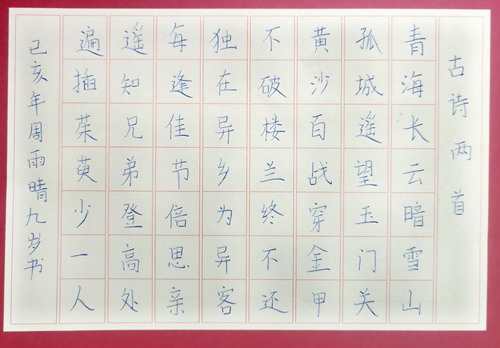 古诗两首
青海长云暗雪山
孤城遥望玉门关
黄沙百战穿金甲
不破楼兰终不还
独在异乡为异客
每逢佳节倍思亲
遥知兄弟登高处
遍插茱萸少一人
己亥年周雨晴九岁书